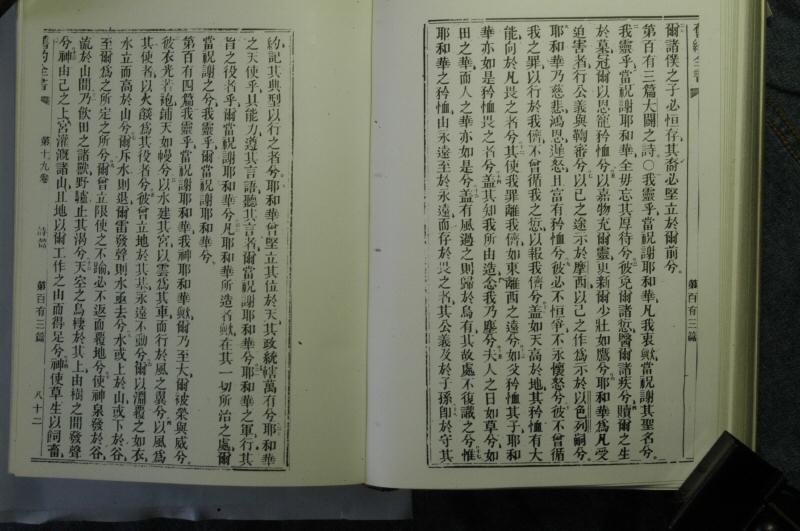 舊約全書
爾諸僕之子必恒存其裔必堅立於爾前兮
第百有三篇大闢之詩○我靈乎當祝謝耶和華凡我衷歟當祝謝其聖名兮
我靈乎當祝謝耶和華全毋忘其厚待兮彼免爾諸愆醫爾諸疾兮贖爾之生
於墓冠爾以恩寵矜恤兮以嘉物充爾靈更新爾少壯如鷹兮耶和華為凡受
迫害者行公義與鞫審兮以己之途示於摩西以己之作為示於以色列嗣兮
耶和華乃慈悲鴻恩遲怒且富有矜恤兮彼必不恒爭不永懷怒兮彼不曾循
我之罪以行於我儕不曾循我之愆以報我儕兮蓋如天高於地其矜恤有大
能向於凡畏之者兮其使我罪離我儕如東離西之遠兮如父矜恤其子耶和
華亦如是矜恤畏之者兮蓋其知我所由造念我乃塵兮夫人之日如草兮如
田之華而人之華亦如是兮蓋有風過之則歸於烏有其故處不復識之兮惟
耶和華之矜恤由永遠至於永遠而存於畏之者其公義及於子孫卽於守其
第百有三篇
約記其典型以行之者兮耶和華曾堅立其位於天其政統轄萬有兮耶和華
之天使乎其能力遵其言語聽其言者爾當祝謝耶和華兮耶和華之軍行其
旨之役者乎爾當祝謝耶和華兮凡耶和華所造者歟在其一切所治之處爾
當祝謝之兮我靈乎爾當祝謝耶和華兮
第百有四篇我靈乎當祝謝耶和華我神耶和華歟爾乃至大爾被榮與威兮
彼衣光若袍鋪天如幔兮以水建其宮以雲為其車而行於風之翼兮以風為
其使者以火燄為其役者兮彼曾立地於其基永遠不動兮爾以淵覆之如衣
水立而高於山兮爾斥水則退爾雷發聲則水亟去兮水或上於山或下於谷
至爾為之所定之所兮爾曾立限使之不踰必不返而覆地兮使神泉發於谷
流於山間乃飲田之諸獸野驢止其渴兮天空之鳥棲於其上由樹之間發聲
兮神由己之上宮灌溉諸山且地以爾工作之由而得足兮神使草生以飼畜
舊約全書
第十九卷
詩篇
第百有三篇
八十二